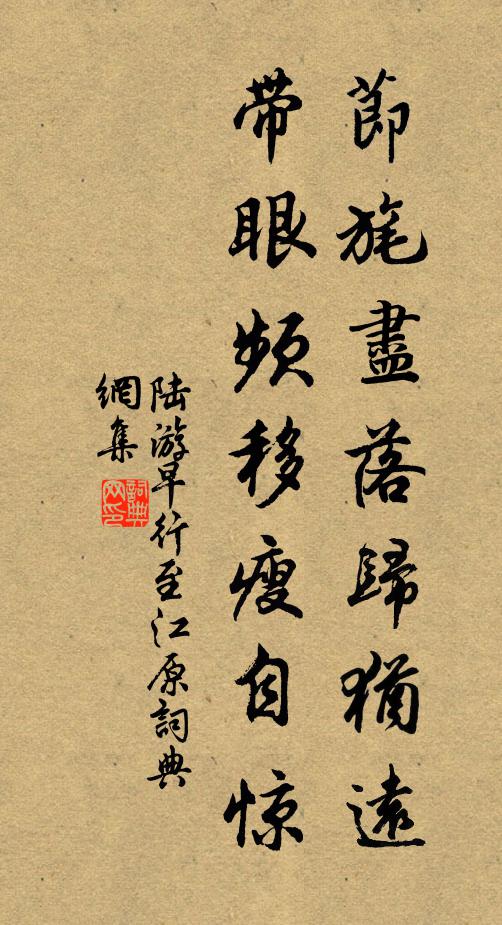 節旄盡落歸猶遠
帶眼頻移瘦自惊
陸游早行至江原詞典
網集
詞典
网印